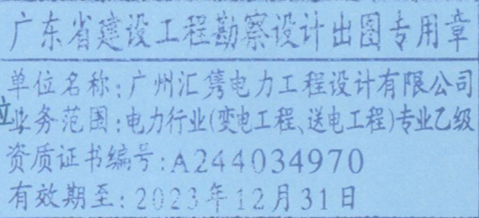 广东省建设工程勘察设计出图专用章
单位名称:广州汇隽电力工程设计有限公司
业务范围:电力行业(变电工程、送电工程)专业乙级
资质证书编号:A244034970
有效期至:2023年12月31日